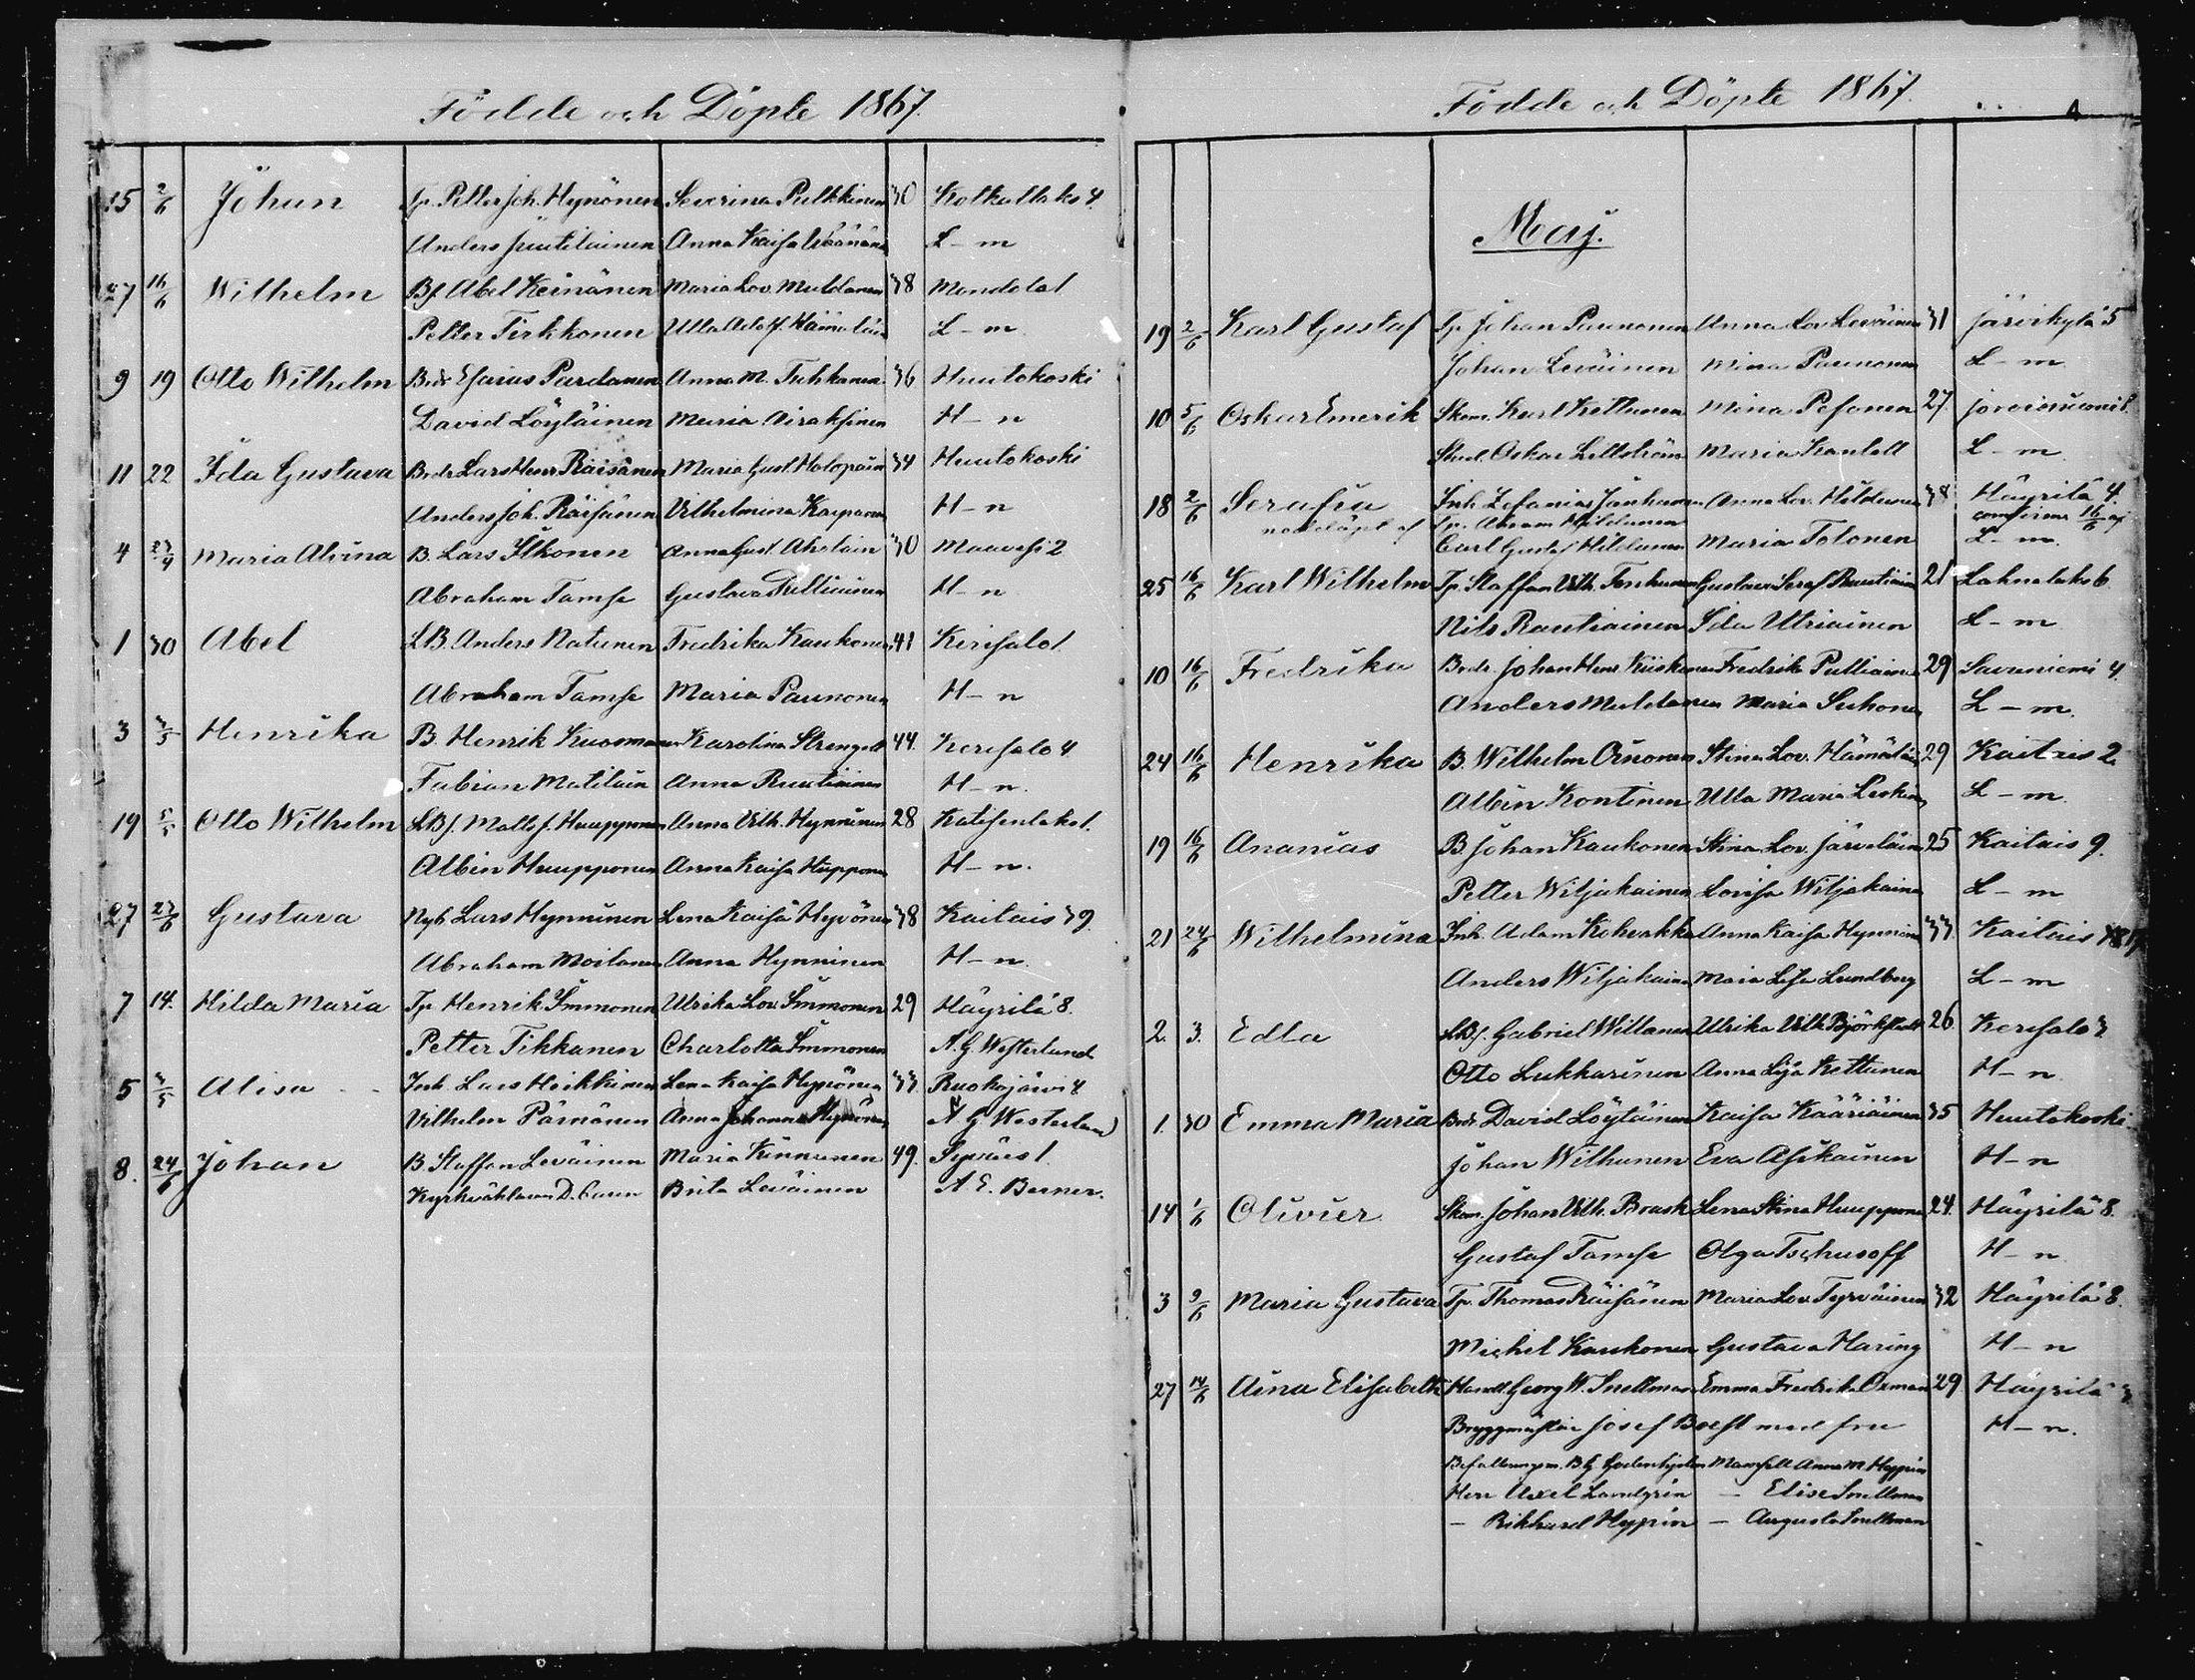 Födde och Döpte 1867.
15 2/6 Johan Tp. Petter Joh. Hynönen Severina Pulkkinen 30 Kolkutlaks 4.
Anders Juutilainen Anna Kaisa L-m
27 16/6 Wilhelm Bf. Abel Keinänen Maria Lov. Muldanen 38 Mondola 1
Petter Tirkkonen Ulla Adolf. Hämäläin L-m
9 19 Otto Wilhelm Bndr Esaias Pardanen Anna M. Tuhkanen 36 Huutokoski
David Löytäinen Maria Airaksinen H-n
11 22 Ida Gustava Bndr Lars Henr Räisänen Maria Gust. Holopain 34 Huutokoski
Anders Joh. Räisänen Vilhelmina Karpanen H-n
4 23/4 Maria Alvina B. Lars Ikonen Anna Gust. Aholain 30 Maavesi 2
Abraham Tamse Gustava Pulliainen H-n
1 30 Abel LB. Anders Natunen Fredrika Kaukonen 41 Kerisalo 1
Abraham Tamse Maria Paunonen H-n
3 3/5 Henrika B. Henrik Kuosmanen Karolina Strengell 44. Kerisalo 4
Fabian Matilain Anna Rautiainen H-n.
19 5/5 Otto Wilhelm LBf. Matts J. Huupponen Anna Vilh. Hynninen 28 Katisenlaks 1.
Albin Huupponen Anna Kaisa Hupponen H-n.
27 23/6 Gustava Nyb Lars Hynninen Lena Kaisa Hyvönen 38 Kaitais 39.
Abraham Moilanen Anna Hynninen H-n.
7 14. Hilda Maria Tp Henrik Immonen Ulrika Lov. Immonen 29 Häyrilä 8.
Petter Tikkanen Charlotta Immonen A. G. Westerlund
5 3/5 Alisa - - Inh. Lars Heikkinen Lena Kaisa Hyvönen 33. Ruokojärvi 4
Vilhelm Pärnänen Anna Johanna Hynönen A G Westerlund
8. 24/6 Johan B Staffan Leväinen Maria Kinnunen 49. Syväis 1.
Kyrkvaktaren D. Caren Brita Leväinen A. E. Berner.
Födde och Döpte 1867.
Maj.
19 2/6 Karl Gustaf Tp Johan Paunonen Anna Lov Leväinen 31 Järvikylä 5
Johan Leväinen Mina Paunonen L-m.
10 5/6 Oskar Emerik Skom. Karl Kettunen Mina Pesonen 27.
Stud. Oskar Lillström Maria Kantell L-m.
18 2/6 Serafia Inh Zefanias Janhunen Anna Lov. Hildunen 38 Häyrilä 4.
nöddöpt af Tp. Abram Hildunen 16/6 af
Carl Gustaf Hildunen Maria Tolonen L-m.
25 16/6 Karl Wilhelm Tp. Staffan Vilh. Tenhunen Gustava Seraf. Rautiain 21 Lahnalaks 6.
Nils Rautiainen Ida Utriainen L-m
10 16/6 Fredrika Bndr. Johan Henr Kiiskinen Fredrik Pulliainen 29 Savuniemi 4.
Anders Muldanen Maria Suhonen L-m.
24 16/6 Henrika B. Wilhelm Oinonen Stina Lov. Hämäläin 29 Kaitais 2.
Albin Kontinen Ulla Maria Leskinen L-m.
19 16/6 Ananias B Johan Kaukonen Stina Lov. Järveläin 25 Kaitais 9.
Petter Wiljakainen Lovisa Wiljakaine L-m
21 24/6 Wilhelmina Inh. Adam Kohvakka Anna Kaisa Hynninen 33. Kaitais
Anders Wiljakaine Maria Lisa Lundberg L-m
2. 3. Edla LBf. Gabriel Willanen Ulrika Vilh Björkstedt 26 Kerisalo 3.
Otto Lukkarinen Anna Lisa Kettunen H-n
1. 30 Emma Maria Bndr David Löytäinen Kaisa Kääriäinen 35 Huutokoski.
Johan Wilhunen Eva Asikainen H-n
14 1/6 Olivier Skom. Johan Vilh. Brusk Lena Stina Huupponen 24. Häyrilä 8.
Gustaf Tamse Olga Tschusoff H-n
3 9/6 Maria Gustava Tp. Thomas Räisänen Maria Lov. Tyrväinen 32 Häyrilä 8.
Michel Kaukonen Gustava Haring H-n
27 14/6 Aina Elisabeth Handl. Georg W. Snellman Emma Fredrika Oxman 29. Häyrilä 3
Bryggmästar Josef Boest med fru H-n.
Befallningsm. B. G. Mamsell Anna M. Heppin
Herr Axel Landgrin - Elise Snellman
- Rikhard Heppin - Augusta Snellman